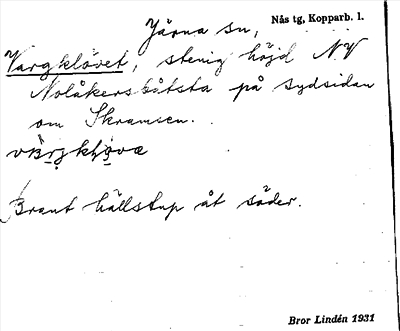 Järna sn, Nås tg, Kopparb. l.
Vargklövet, stenig höjd NV
Nolåkersbåtsta på sydsidan
om Skramsen.
Brant hällstup åt söder.
Bror Lindén 1931